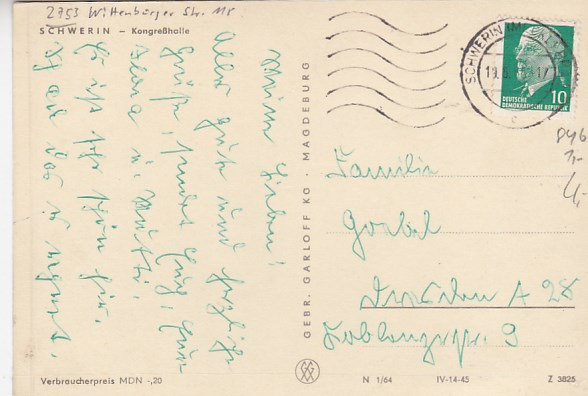 2753 Wittenburger Str. 118
SCHWERIN – Kongreßhalle
Meine Lieben!
Alles gute und herzliche
Grüße, sendet Euch, Eure
u. Mutti.
Es ist sehr schön hier.
GEBR. GARLOFF KG · MAGDEBURG
SCHWERIN
19.6.
DEUTSCHE
DEMOKRATISCHE REPUBLIK
10
846
1,-
4,-
Familie
Goebel
Dresden A 28
Koblenzerstr. 9
Verbraucherpreis MDN -,20
N 1/64
IV-14-45
Z 3825